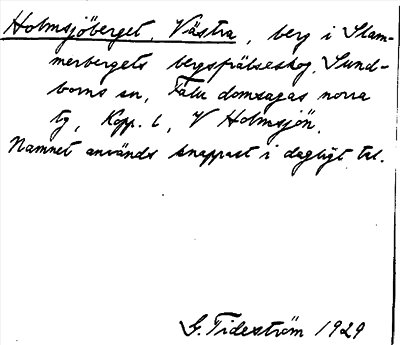 Holmsjöberget, Västra, berg i Slam-
merbergets bergsfrälseskog. Sund-
borns sn, Falu domsagas norra
tg, Kopp. l, V Holmsjön.
Namnet används knappast i dagligt tal.
G. Tideström 1929